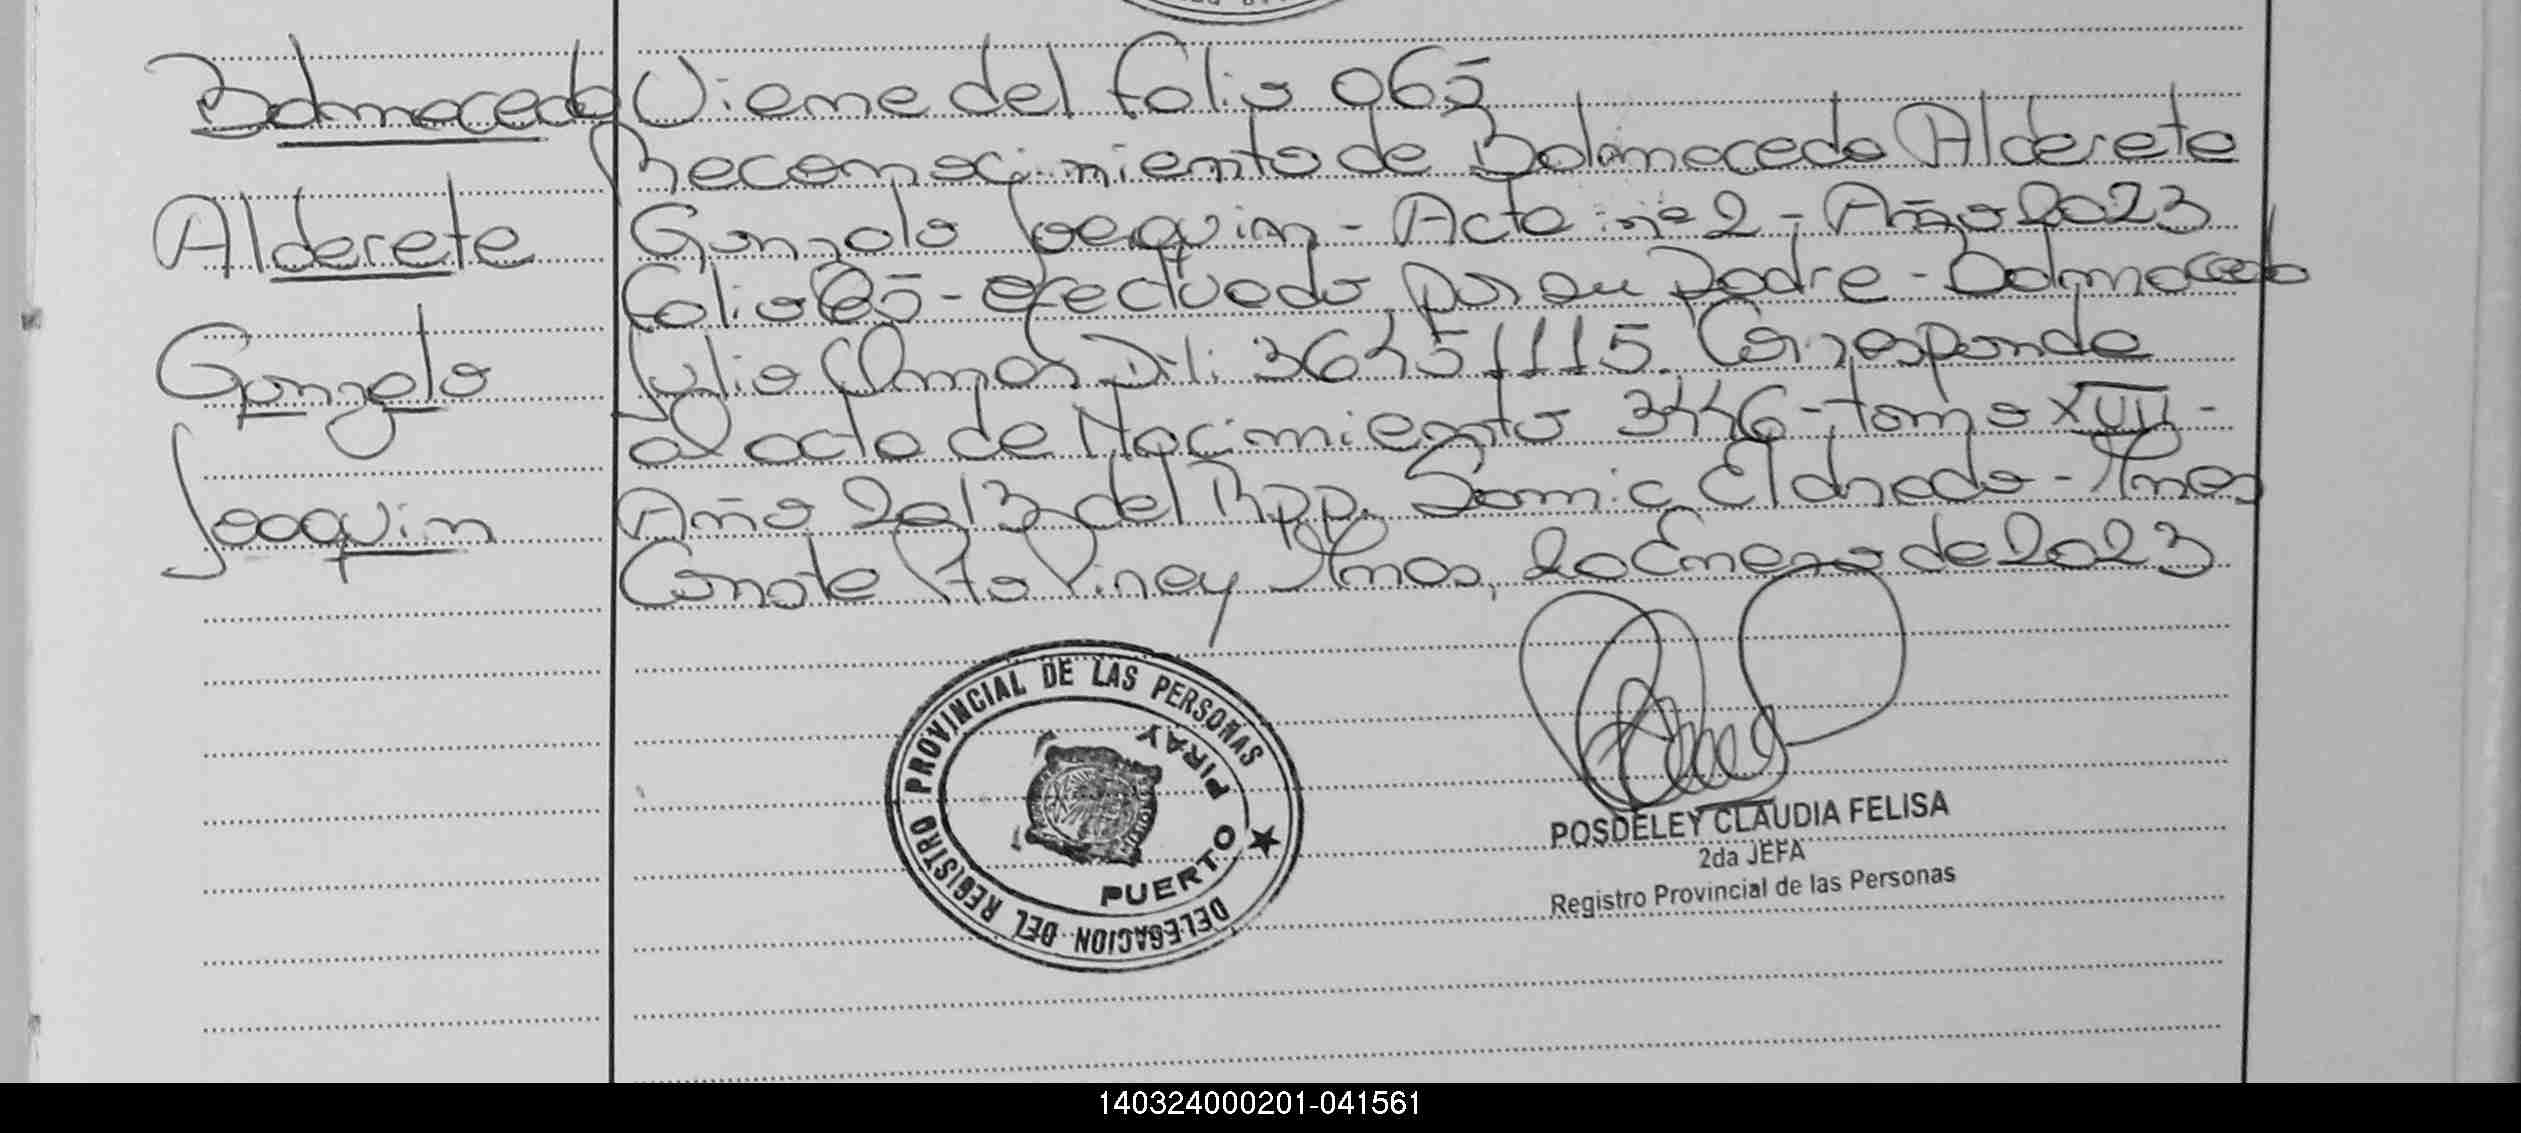 Balmaceda
Alderete
Gonzalo
Joaquin
Viene del folio 065
Reconocimiento de Balmaceda Alderete
Gonzalo Joaquin - Acta nº 2 - Año 2023
folio 65 - efectuado por su Padre - Balmaceda
Julio Amos D.N.I: 36451115. Corresponde
al acta de Nacimiento 3446 - tomo XVII -
Año 2013 del Rpp. Samic Eldorado - Mnes
Conste Pto Piray Mnes, 20 Enero de 2023
DELEGACION DEL REGISTRO PROVINCIAL DE LAS PERSONAS
PUERTO PIRAY
POSDELEY CLAUDIA FELISA
2da JEFA
Registro Provincial de las Personas
140324000201-041561